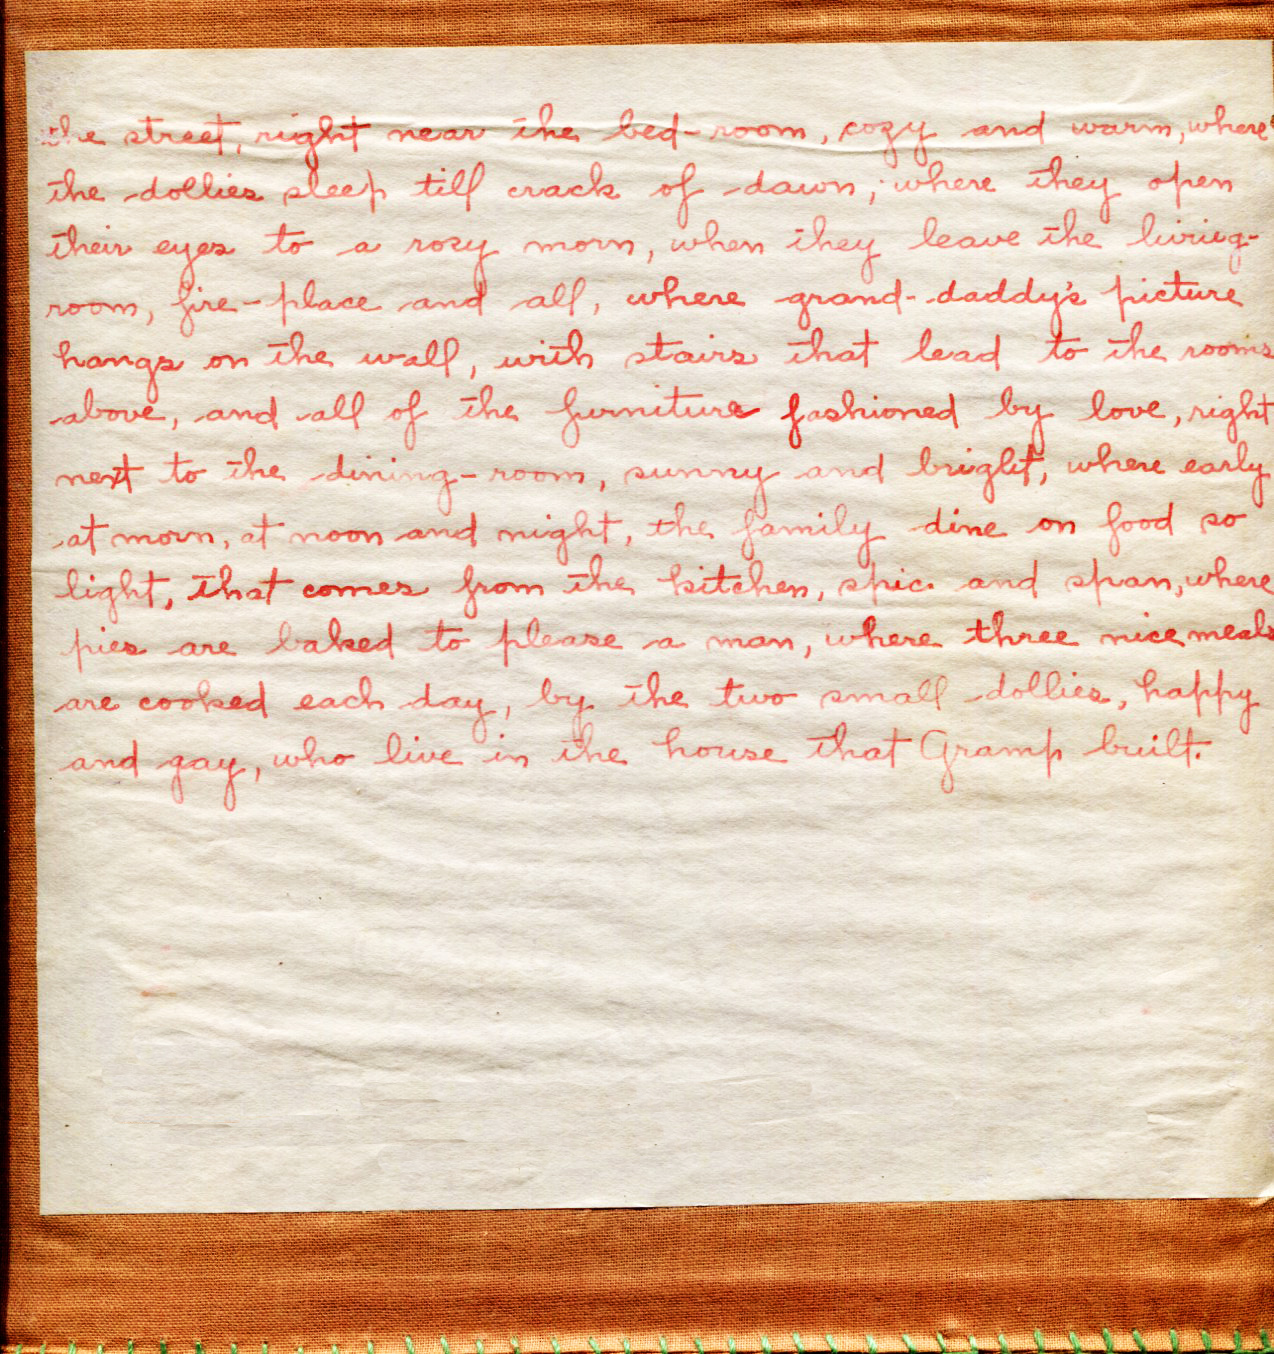 the street, right near the bed-room, cozy and warm, where
the dollies sleep till crack of dawn, where they open
their eyes to a rosy morn, when they leave the living-
room, fire-place and all, where grand-daddy's picture
hangs on the wall, with stairs that lead to the rooms
above, and all of the furniture fashioned by love, right
next to the dining-room, sunny and bright, where early
at morn, at noon and night, the family dine on food so
light, that comes from the kitchen, spic and span, where
pies are baked to please a man, where three nice meals
are cooked each day, by the two small dollies, happy
and gay, who live in the house that Gramp built.